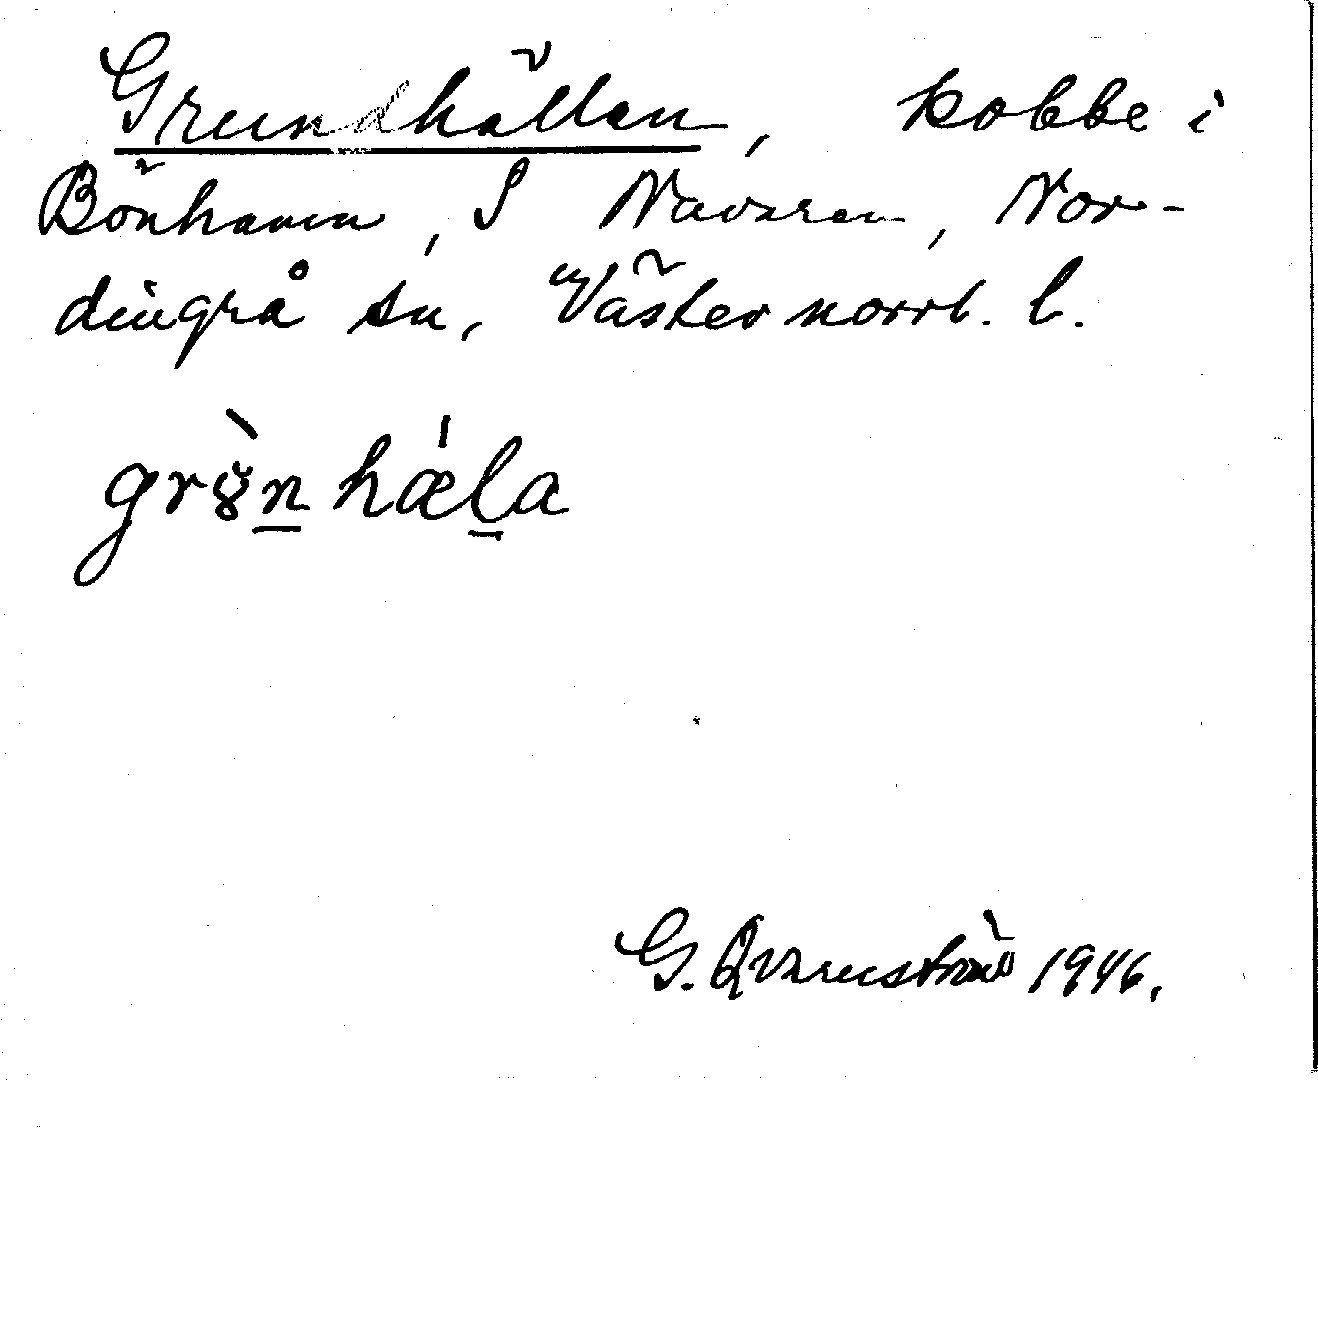 Grundhällan, kobbe i
Bönhamn, S Navaren, Nor-
dingrå sn, Västernorrl. l.
grȣ̀n̲ hǽl̲a
G. Qvarnström 1946.